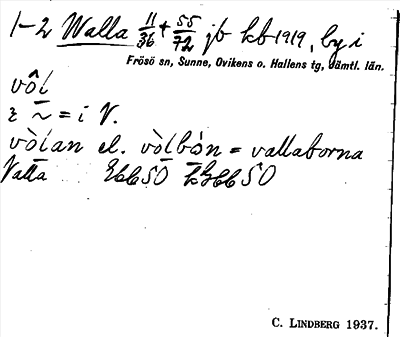 1-2 Walla 11/36 + 55/72 jb kb 1919, by i
Frösö sn, Sunne, Ovikens o. Hallens tg, Jämtl. län.
vôl
ɛ ~ = i V.
vòlan el. vòlbón = vallaborna
Valla EbbSO
C. LINDBERG 1937.